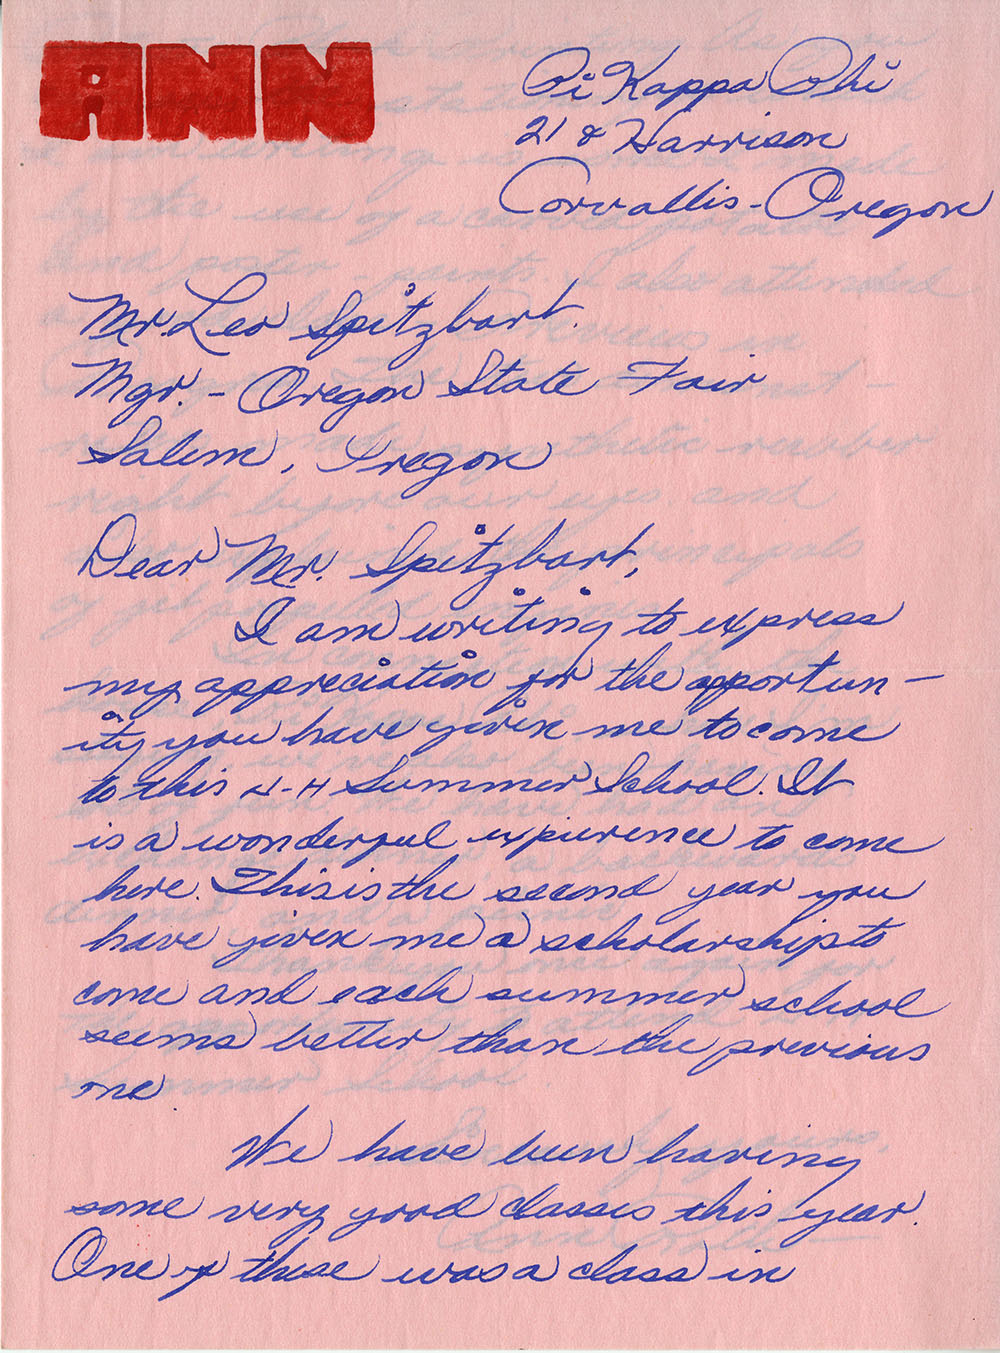 ANN
Pi Kappa Phi
21 & Harrison
Corvallis - Oregon
Mr. Leo Spitzbart.
Mgr. - Oregon State Fair
Salem, Oregon
Dear Mr. Spitzbart,
I am writing to express
my appreciation for the opportun-
ity you have given me to come
to this 4-H Summer School. It
is a wonderful expierence to come
here. This is the second year you
have given me a scholarship to
come and each summer school
seems better than the previous
one
We have been having
some very good classes this year.
One of these was a class in